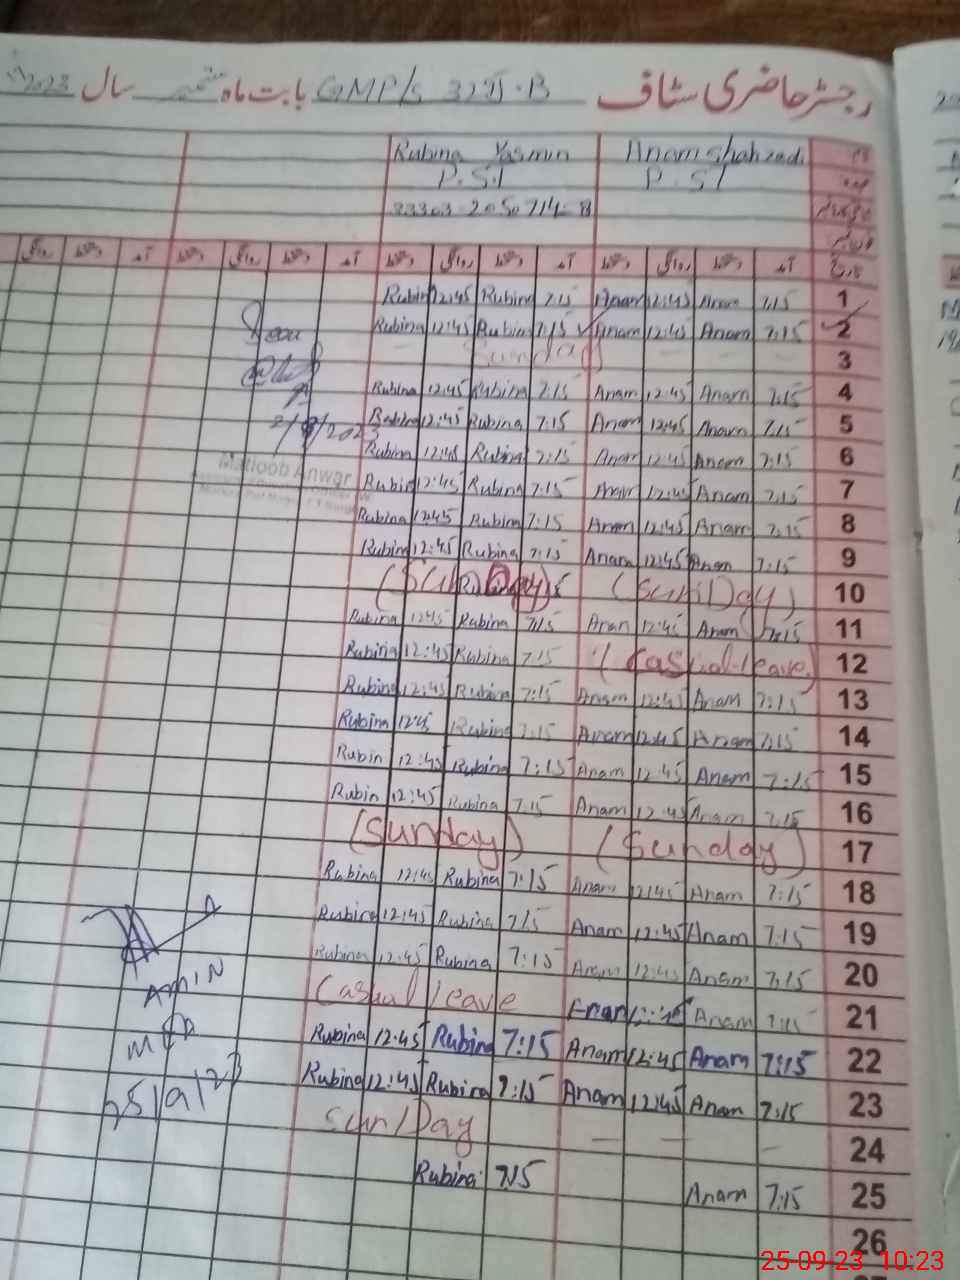 رجسٹر حاضری سٹاف GMP/s بابت ماہ ستمبر سال 2023
نام Anam Shahzadi Rubina Yasmin
عہدہ P.ST P.S.T
آمد دستخط روانگی دستخط آمد دستخط روانگی دستخط آمد دستخط روانگی دستخط آمد دستخط روانگی
1 7:15 Anam 12:45 Anam 7:15 Rubina 12:45 Rubin
2 7:15 Anam 12:45 Anam 7:15 Rubina 12:45 Rubina
3 Sunday
4 7:15 Anam 12:45 Anam 7:15 Rubina 12:45 Rubina
5 7:15 Anam 12:45 Anam 7:15 Rubina 12:45 Rubina
2/9/2023
6 7:15 Anam 12:45 Anam 7:15 Rubina 12:45 Rubina
Matloob Anwar
7 7:15 Anam 12:45 Anam 7:15 Rubina 12:45 Rubin
8 7:15 Anam 12:45 Anam 7:15 Rubina 12:45 Rubina
9 7:15 Anam 12:45 Anam 7:15 Rubina 12:45 Rubina
10 (Sunday) (Sunday)
11 7:15 Anam 12:45 Anam 7:15 Rubina 12:45 Rubina
12 (Casual leave) 7:15 Rubina 12:45 Rubina
13 7:15 Anam 12:45 Anam 7:15 Rubina 12:45 Rubina
14 7:15 Anam 12:45 Anam 7:15 Rubina 12:45 Rubina
15 7:15 Anam 12:45 Anam 7:15 Rubina 12:45 Rubin
16 7:15 Anam 12:45 Anam 7:15 Rubina 12:45 Rubin
17 (Sunday) (Sunday)
18 7:15 Anam 12:45 Anam 7:15 Rubina 12:45 Rubina
19 7:15 Anam 12:45 Anam 7:15 Rubina 12:45 Rubina
20 7:15 Anam 12:45 Anam 7:15 Rubina 12:45 Rubina
AMIN
21 7:15 Anam 12:45 Anam Casual leave
22 7:15 Anam 12:45 Anam 7:15 Rubina 12:45 Rubina
23 7:15 Anam 12:45 Anam 7:15 Rubina 12:45 Rubina
25/9/23
24 Sun/Day
25 7:15 Anam 7:15 Rubina
26
25-09-23 10:23